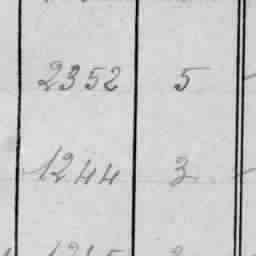 2352 5
1244 3